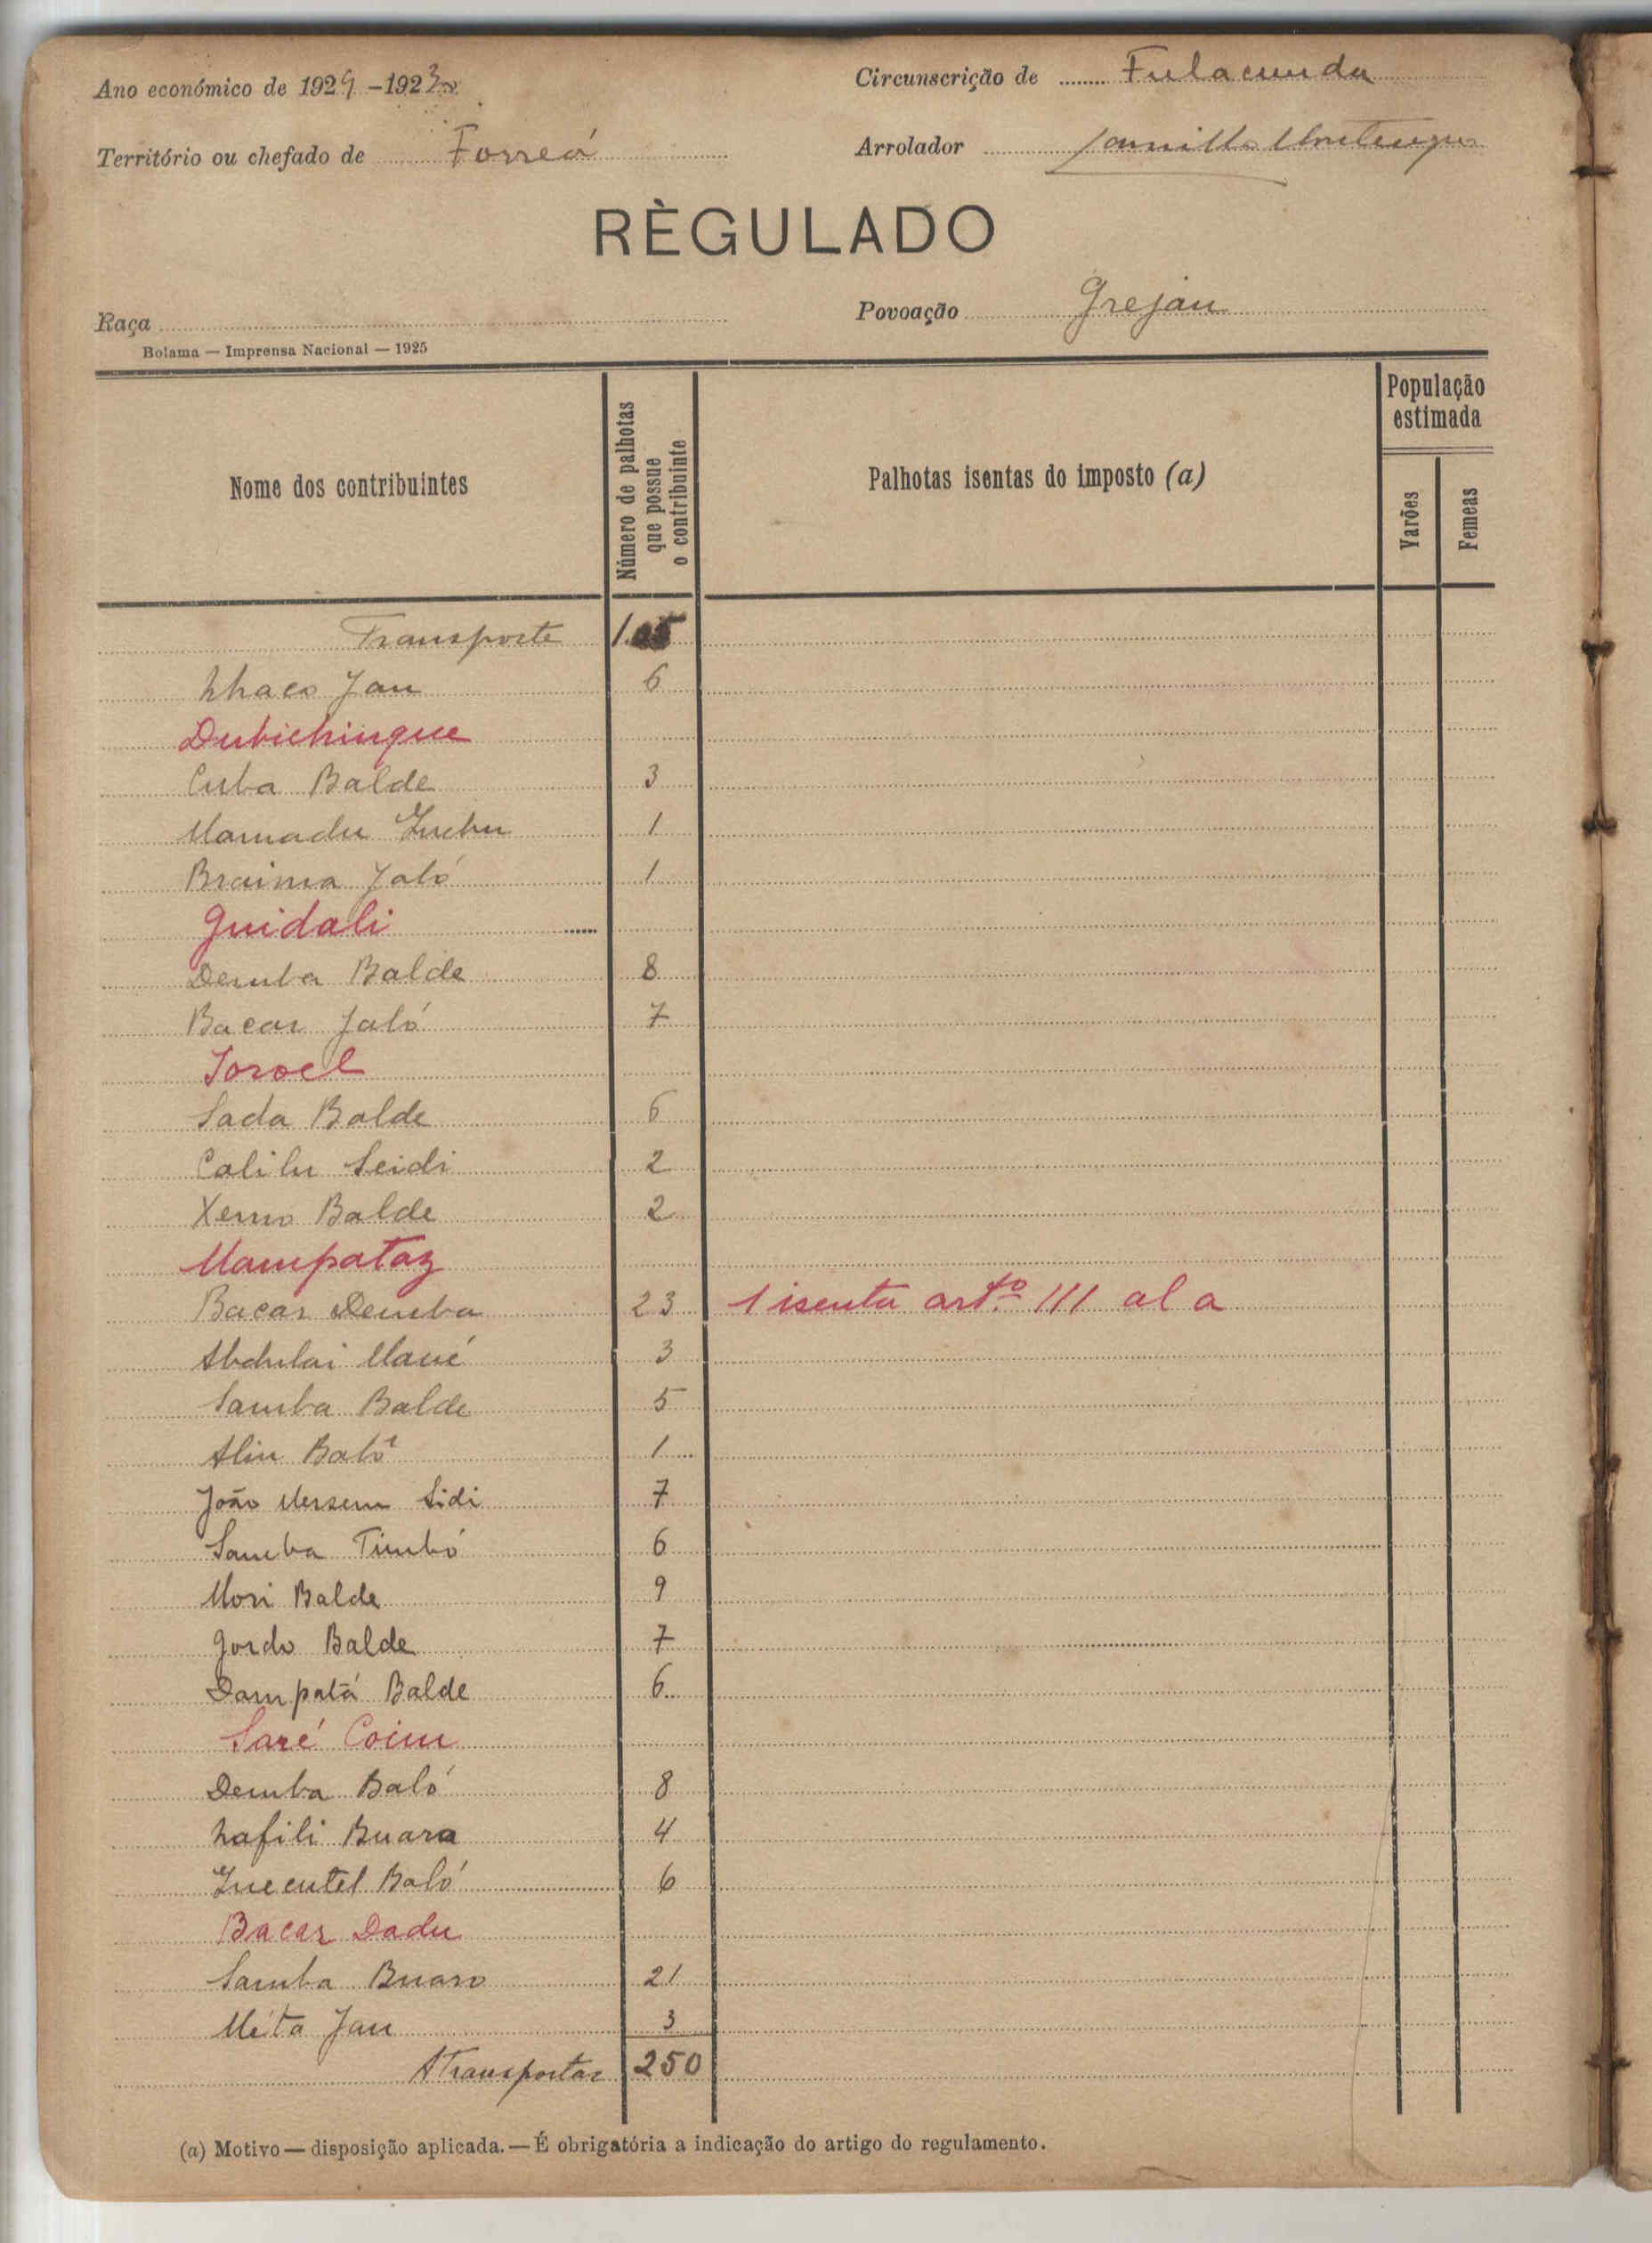 Ano económico de 1929-1923
Circunscrição de Fulacunda
Território ou chefado de Forreá
Arrolador
RÈGULADO
Raça
Povoação Grejau
Bolama — Imprensa Nacional — 1925
Nome dos contribuintes
Número de palhotas que possue o contribuinte
Palhotas isentas do imposto (a)
População estimada
Varões
Femeas
Transporte
Jau 6
Dubichingue
Cuba Balde 3
Mamadu 1
Braima Jaló 1
Guidali
Demba Balde 8
Bacar Jaló 7
Soroel
Sada Balde 6
Calilu Seidi 2
Xerno Balde 2
Mampataz
Bacar Demba 23 1 isenta artº. 111 al a
Abdulai Mané 3
Samba Balde 5
Aliu Baló 1
João Sidi 7
Samba Timbó 6
Mori Balde 9
Gordo Balde 7
Dampatá Balde 6
Saré Coiu
Demba Baló 8
Nafili Buara 4
Baló 6
Bacar Dadu
Samba Buaro 21
Meta Jau 3
A Transportar 250
(a) Motivo — disposição aplicada. — É obrigatória a indicação do artigo do regulamento.